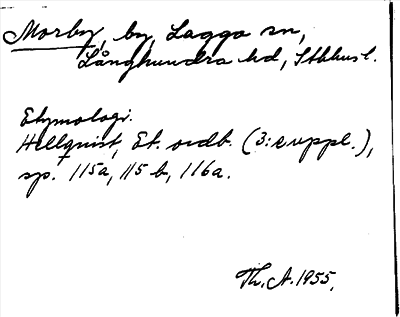 Morby, by, Lagga sn,
Långhundra hd, Sthlms l.
Etymologi.
Hellquist, Et. ordb. (3:e uppl.),
sp. 115a, 115b, 116a.
Th. A. 1955.